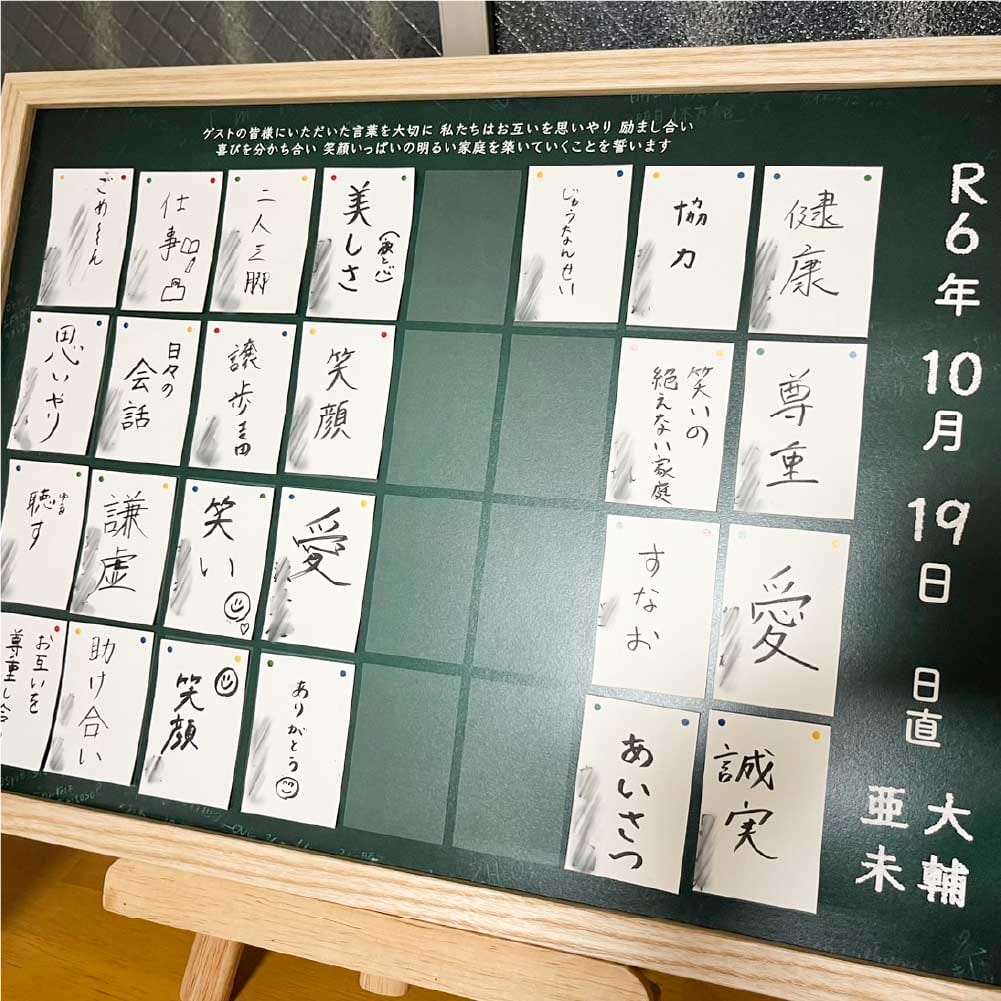 ゲストの皆様にいただいた言葉を大切に 私たちはお互いを思いやり 励まし合い
喜びを分かち合い 笑顔いっぱいの明るい家庭を築いていくことを誓います
R6年 10月 19日 日直
大輔
亜未
健康
尊重
愛
誠実
協力
笑いの
絶えない家庭
すなお
あいさつ
じゅうなんせい
美しさ
笑顔
愛
ありがとう
二人三脚
譲歩
笑い
笑顔
仕事
日々の
会話
謙虚
助け合い
思いやり
ゆる
聴す
お互いを
尊重し合